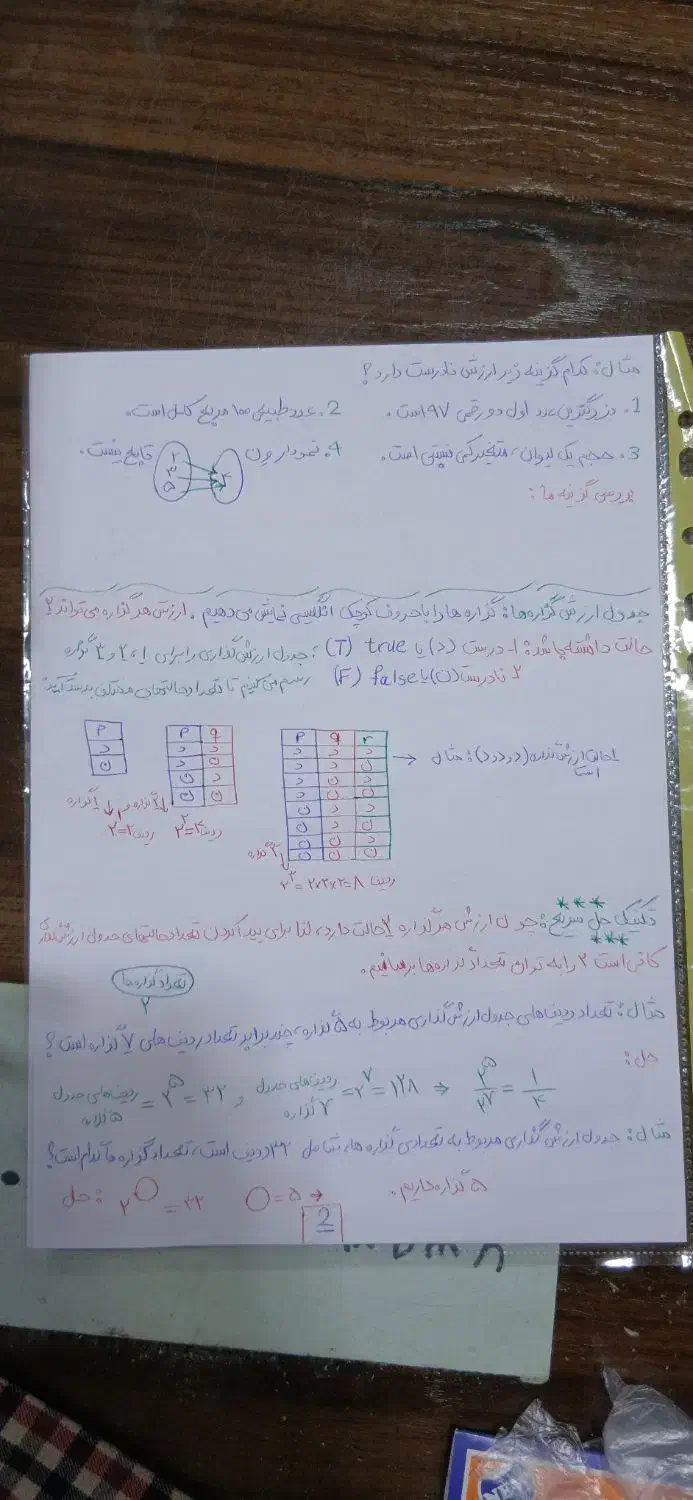 مثال: کدام گزینه زیر ارزش نادرست دارد؟
1. بزرگترین عدد اول دو رقمی ۹۷ است. 2. عدد طبیعی ۱۰۰ مربع کامل است.
3. حجم یک لیوان، متغیر کمی نسبتی است. 4. نمودار ون ۲ ۳ ۵ ۴ تابع نیست.
بررسی گزینه ها:
جدول ارزش گزاره ها: گزاره ها را با حروف کوچک انگلیسی نمایش می دهیم. ارزش هر گزاره می تواند ۲
حالت داشته باشد: ۱- درست (د) یا true (T) : جدول ارزش گذاری را برای ۱، ۲ و ۳ گزاره
۲ نادرست (ن) یا false (F) رسم می کنیم تا تعداد حالتهای مختلف بدست آید:
P
د
ن
P q
د د
د ن
ن د
ن ن
P q r
د د د
د د ن
د ن د
د ن ن
ن د د
ن د ن
ن ن د
ن ن ن
مثال: (د و د و د) حالت ارزش
است
۱ گزاره
۲ = ۲ ردیف
۲ گزاره
۲² = ۴ ردیف
۳ گزاره
۲³ = ۲×۲×۲ = ۸ ردیف
تکنیک حل سریع: چون ارزش هر گزاره ۲ حالت دارد، لذا برای پیدا کردن تعداد حالتهای جدول ارزش گذاری
کافی است ۲ را به توان تعداد گزاره ها برسانیم.
تعداد گزاره ها
۲
مثال: تعداد ردیف های جدول ارزش گذاری مربوط به ۵ گزاره، چند برابر تعداد ردیف های ۷ گزاره است؟
حل:
ردیف های جدول ۵ گزاره = ۲⁵ = ۳۲ و ردیف های جدول ۷ گزاره = ۲⁷ = ۱۲۸ ⇒ ۲⁵/۲⁷ = ۱/۴
مثال: جدول ارزش گذاری مربوط به تعدادی گزاره ها، شامل ۳۲ ردیف است، تعداد گزاره ها کدام است؟
حل: ۲○ = ۳۲ ○ = ۵ → ۵ گزاره داریم.
2